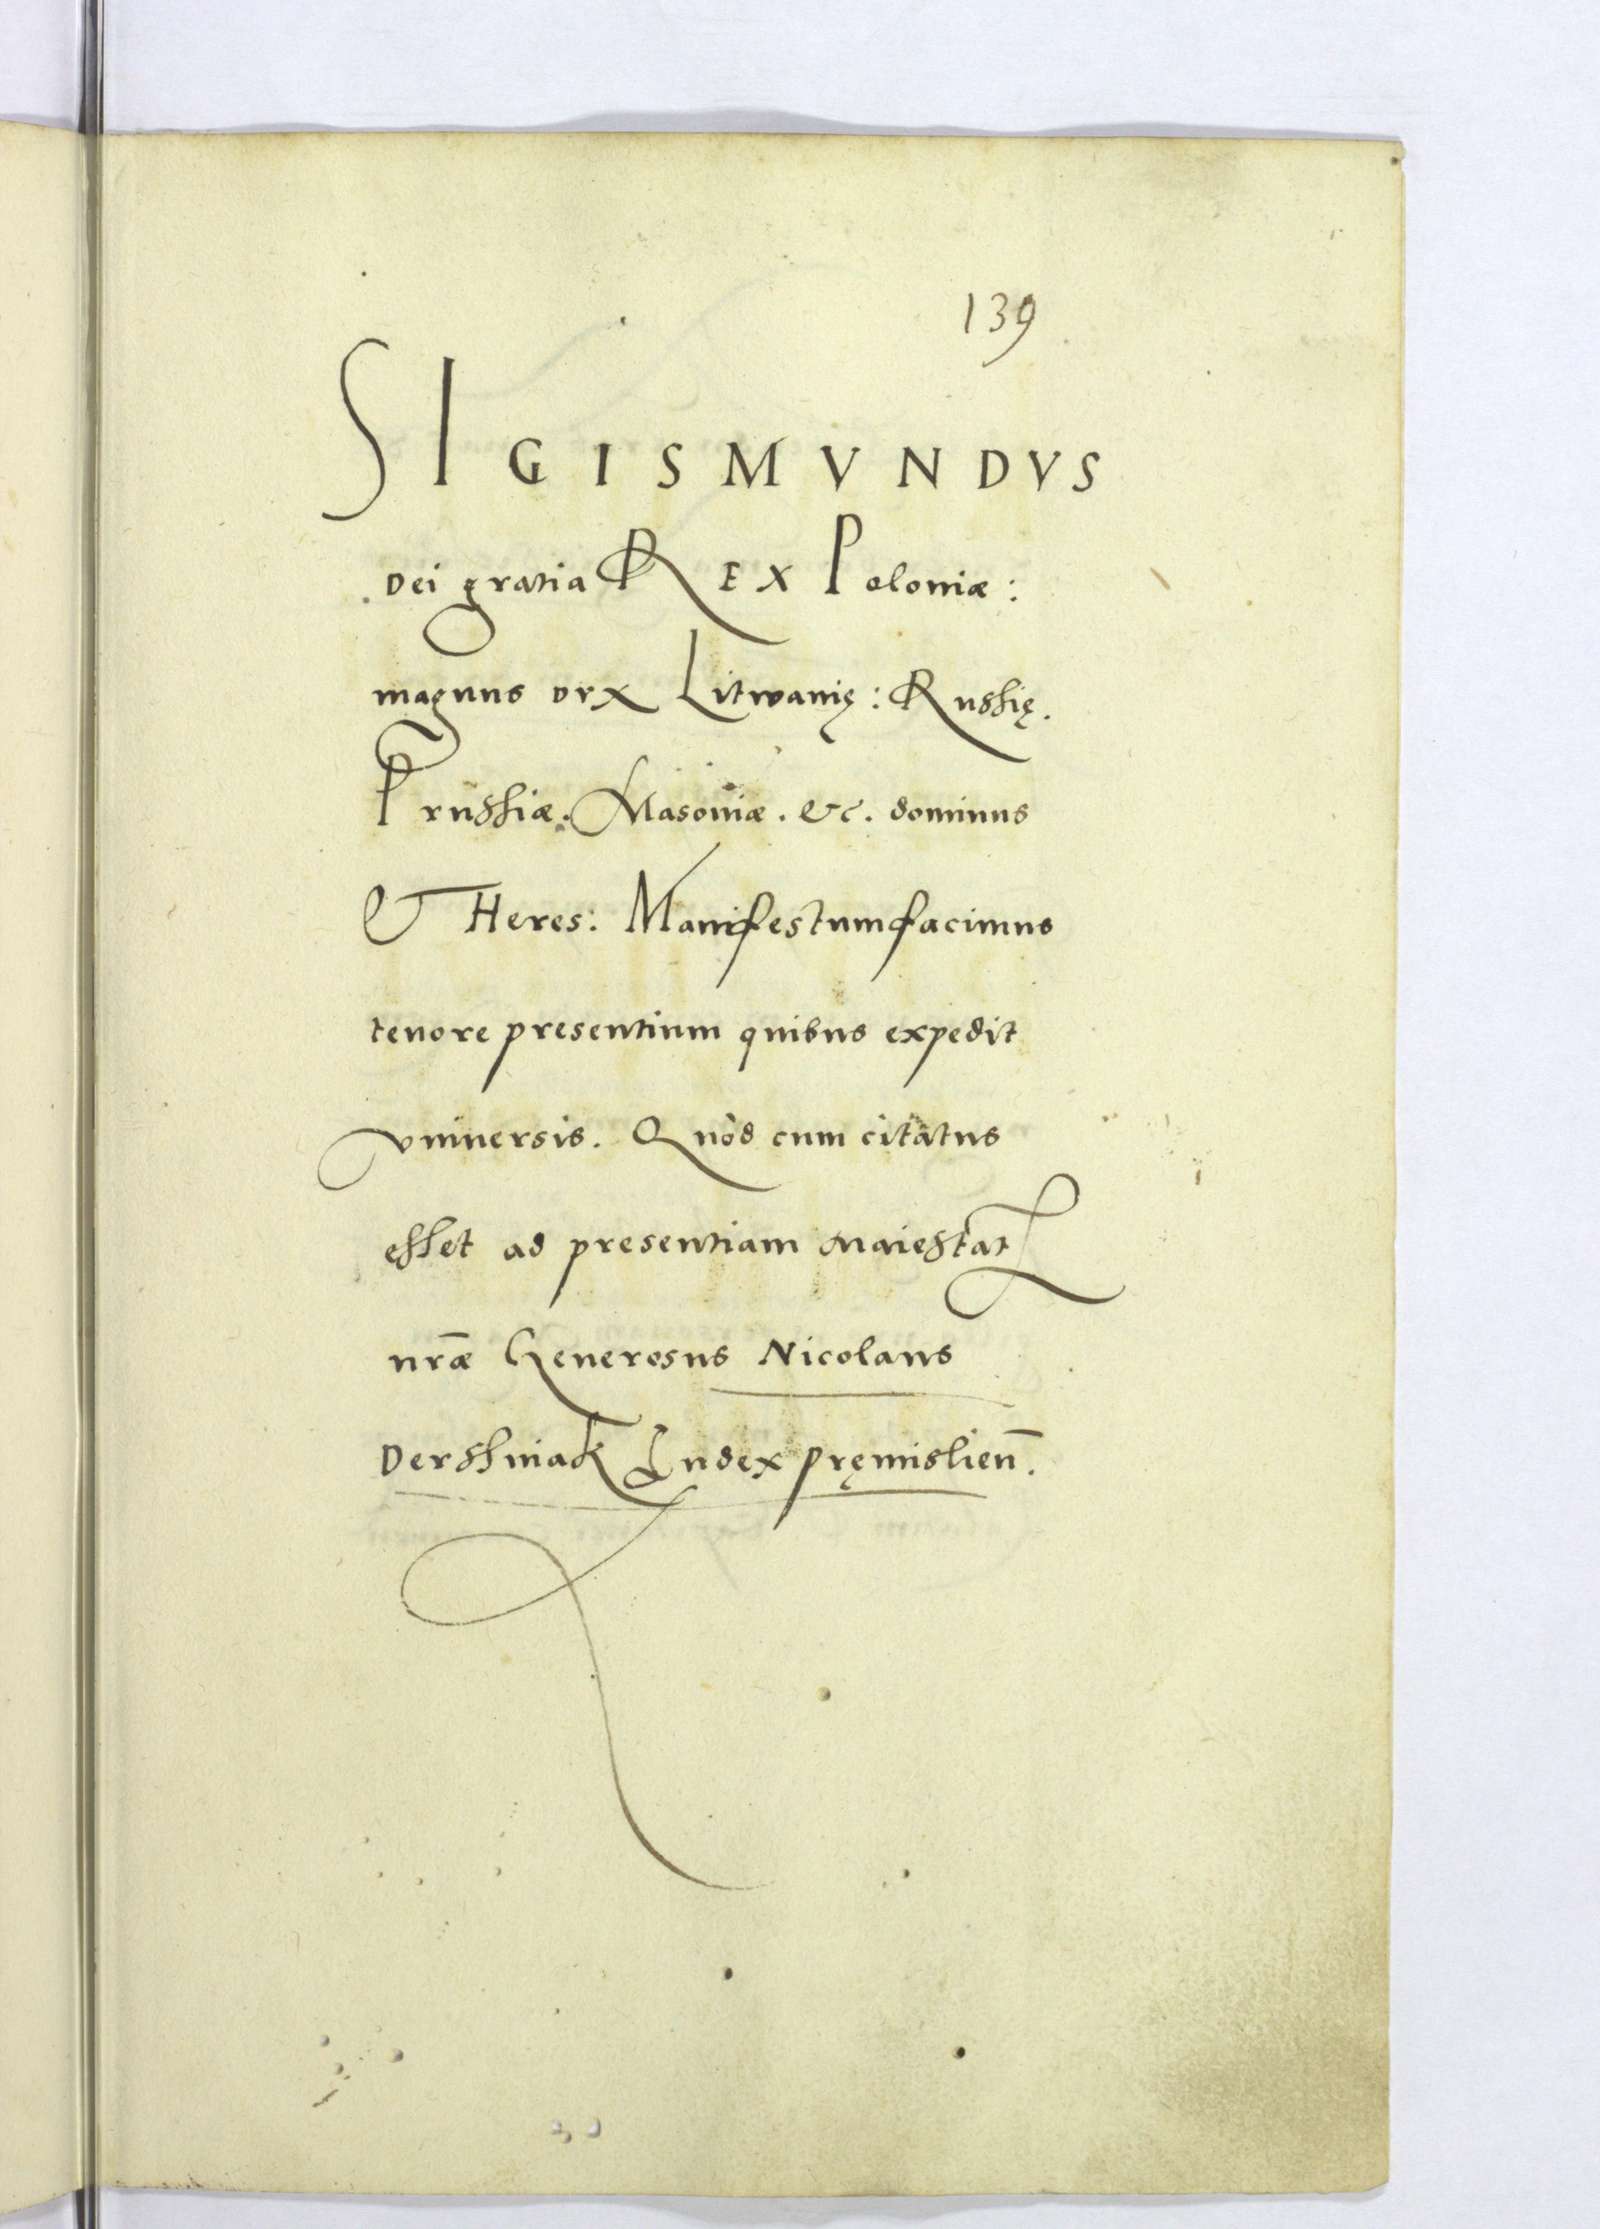 139
SIGISMVNDVS
Dei gratia REX Poloniæ:
magnus DVX Litwanię: Russię.
Prussiæ. Masoviæ. &c. dominus
& Heres: Manifestum facimus
tenore presentium quibus expedit
vniuersis. Quòd cum citatus
esset ad presentiam Maiestat
nr̄æ Generosus Nicolaus
Dersniak Iudex pręmislien̄.